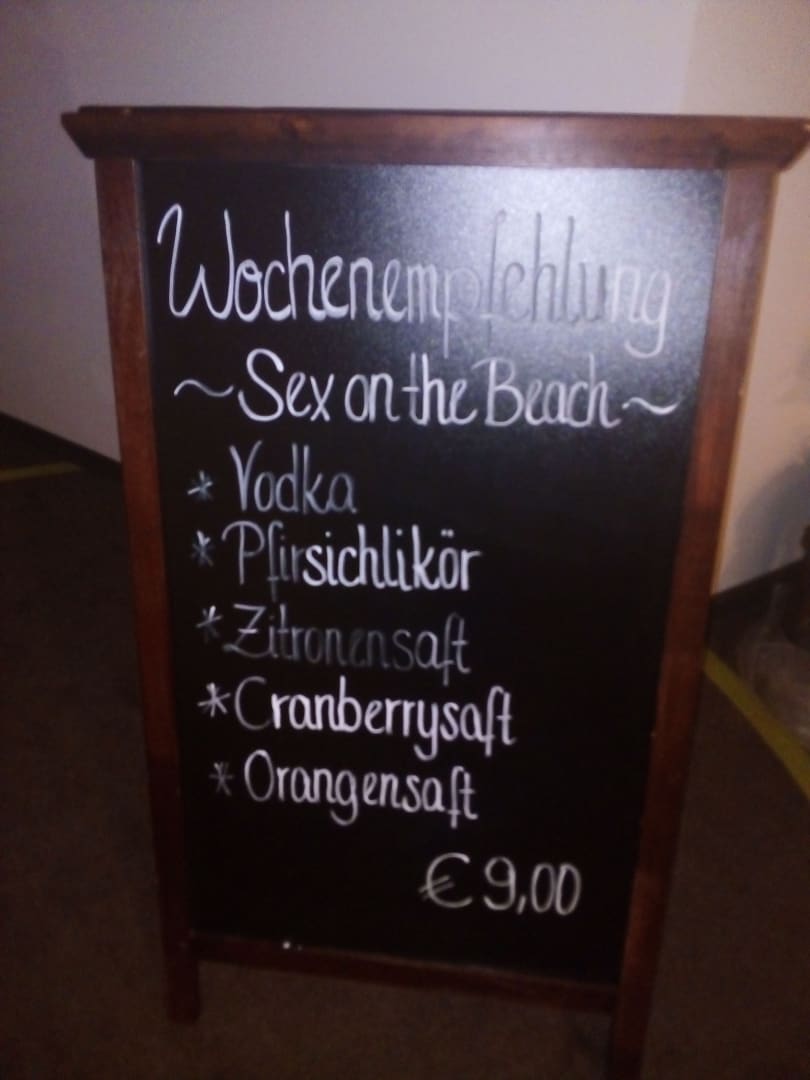 Wochenempfehlung
~ Sex on the Beach ~
* Vodka
* Pfirsichlikör
* Zitronensaft
* Cranberrysaft
* Orangensaft
€ 9,00